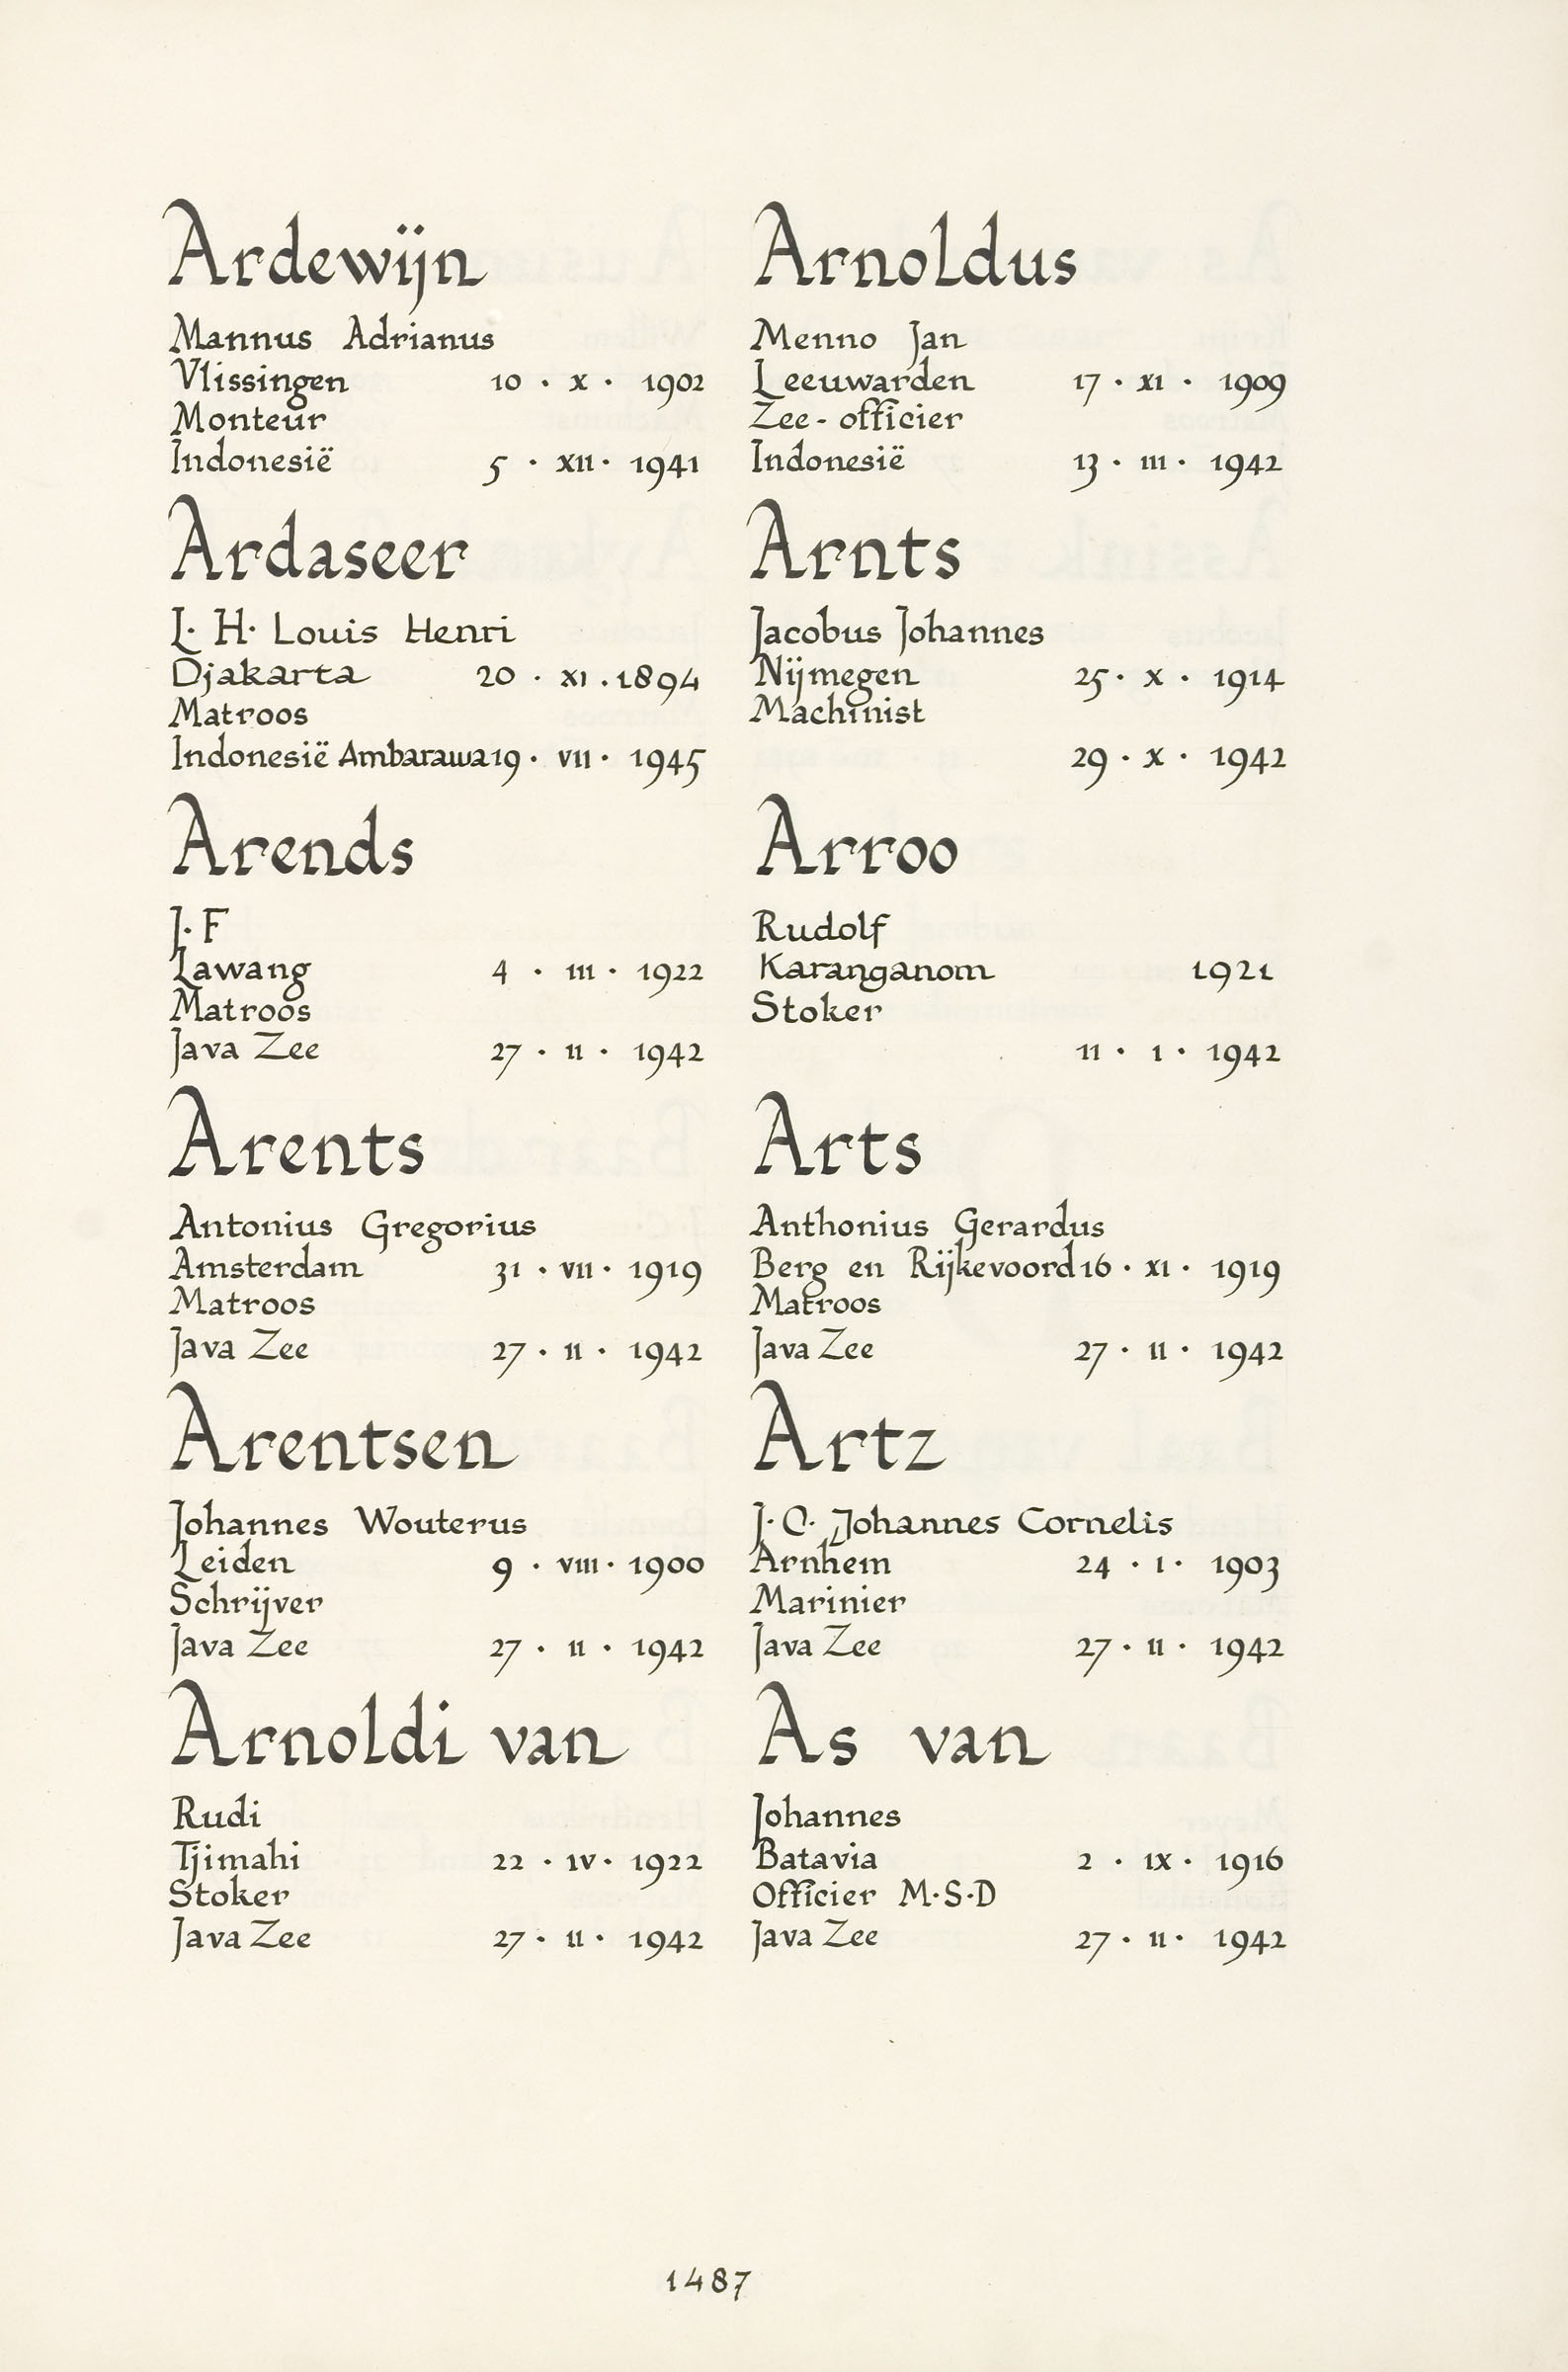 Ardewijn
Mannus Adrianus
Vlissingen 10 · X · 1902
Monteur
Indonesië 5 · XII · 1941
Ardaseer
L. H. Louis Henri
Djakarta 20 · XI . 1894
Matroos
Indonesië Ambarawa 19 · VII · 1945
Arends
J. F
Lawang 4 · III · 1922
Matroos
Java Zee 27 · II · 1942
Arents
Antonius Gregorius
Amsterdam 31 · VII · 1919
Matroos
Java Zee 27 · II · 1942
Arentsen
Johannes Wouterus
Leiden 9 · VIII · 1900
Schrijver
Java Zee 27 · II · 1942
Arnoldi van
Rudi
Tjimahi 22 · IV · 1922
Stoker
Java Zee 27 · II · 1942
Arnoldus
Menno Jan
Leeuwarden 17 · XI · 1909
Zee-officier
Indonesië 13 · III · 1942
Arnts
Jacobus Johannes
Nijmegen 25 · X · 1914
Machinist
29 · X · 1942
Arroo
Rudolf
Karanganom 1921
Stoker
11 · I · 1942
Arts
Anthonius Gerardus
Berg en Rijkevoord 16 · XI · 1919
Matroos
Java Zee 27 · II · 1942
Artz
J. C. Johannes Cornelis
Arnhem 24 · I · 1903
Marinier
Java Zee 27 · II · 1942
As van
Johannes
Batavia 2 · IX · 1916
Officier M·S·D
Java Zee 27 · II · 1942
1487